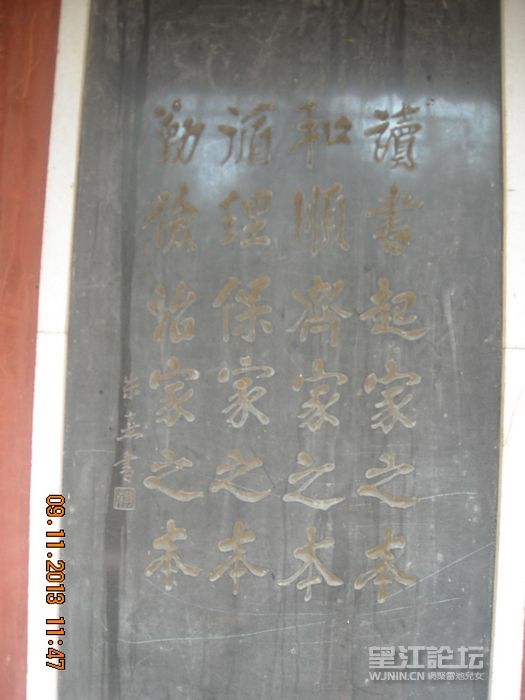 讀書起家之本
和順齊家之本
循理保家之本
勤儉治家之本
朱熹書
09.11.2013 11:47
望江論坛
WJNIN.CN 網聚雷池兒女